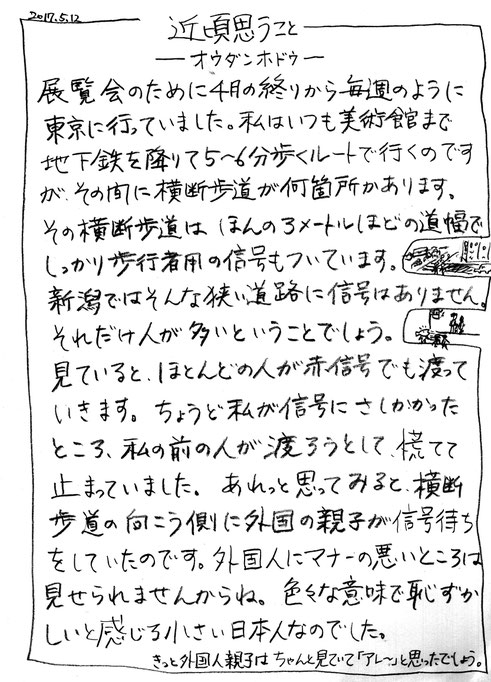 2017.5.12
近頃思うこと
―オウダンホドウ―
展覧会のために4月の終りから毎週のように
東京に行っていました。私はいつも美術館まで
地下鉄を降りて5~6分歩くルートで行くのです
が、その間に横断歩道が何箇所かあります。
その横断歩道は ほんの3メートルほどの道幅で
しっかり歩行者用の信号もついています。
新潟ではそんな狭い道路に信号はありません。
それだけ人が多いということでしょう。
見ていると、ほとんどの人が赤信号でも渡って
いきます。ちょうど私が信号にさしかかった
ところ、私の前の人が渡ろうとして、慌てて
止まっていました。あれっと思ってみると、横断
歩道の向こう側に外国の親子が信号待ち
をしていたのです。外国人にマナーの悪いところは
見せられませんからね。色々な意味で恥ずか
しいと感じる小さい日本人なのでした。
きっと外国人親子はちゃんと見ていて「アレ~」と思ったでしょう。